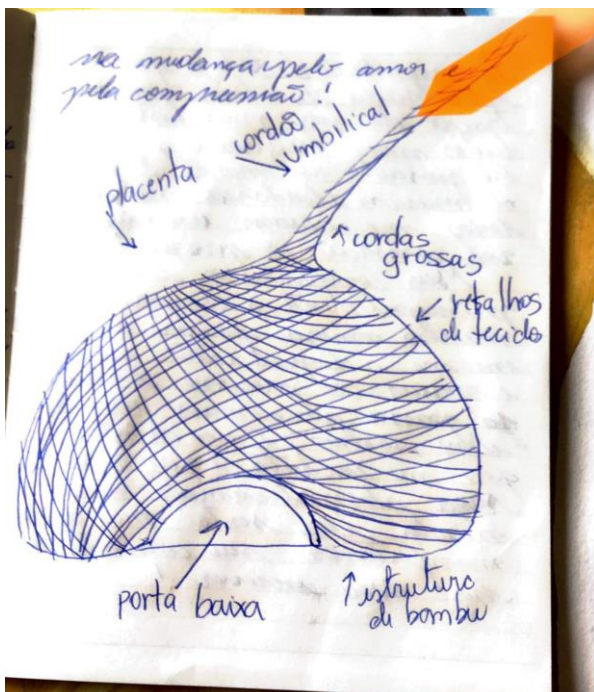 na mudança, pelo amor e
pela compreensão!
cordão
umbilical
placenta
cordas
grossas
retalhos
de tecido
porta baixa
estrutura
de bambu